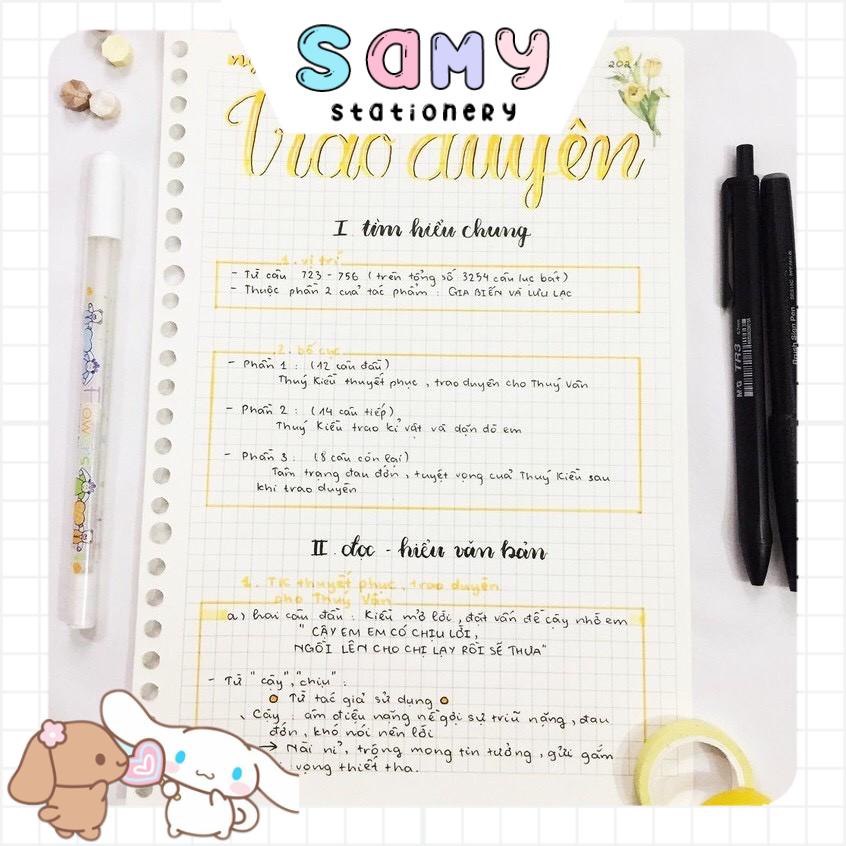 SAMY
stationery
2021
Trao duyên
I. tìm hiểu chung
1. vị trí
- Từ câu 723 - 756 (trên tổng số 3254 câu lục bát)
- Thuộc phần 2 cuả tác phẩm : GIA BIẾN VÀ LƯU LẠC
2. bố cục
- Phần 1 : (12 câu đầu)
Thuý Kiều thuyết phục, trao duyên cho Thuý Vân
- Phần 2 : (14 câu tiếp)
Thuý Kiều trao kỉ vật và dặn dò em
- Phần 3 : (8 câu còn lại)
Tâm trạng đau đớn, tuyệt vọng cuả Thuý Kiều sau
khi trao duyên
II. đọc - hiểu văn bản
1. TK thuyết phục, trao duyên
cho Thuý Vân
a) hai câu đầu : Kiều mở lời, đặt vấn đề cậy nhờ em
" CẬY EM EM CÓ CHỊU LỜI,
NGỒI LÊN CHO CHỊ LẠY RỒI SẼ THƯA"
- Từ "cậy", "chịu" :
Từ tác giả sử dụng
Cậy : âm điệu nặng nề gợi sự trĩu nặng, đau
đớn, khó nói nên lời
→ Nài nỉ, trông mong tin tưởng, gửi gắm
vọng thiết tha.
Flowers
M&G TR3
Brush Sign Pen